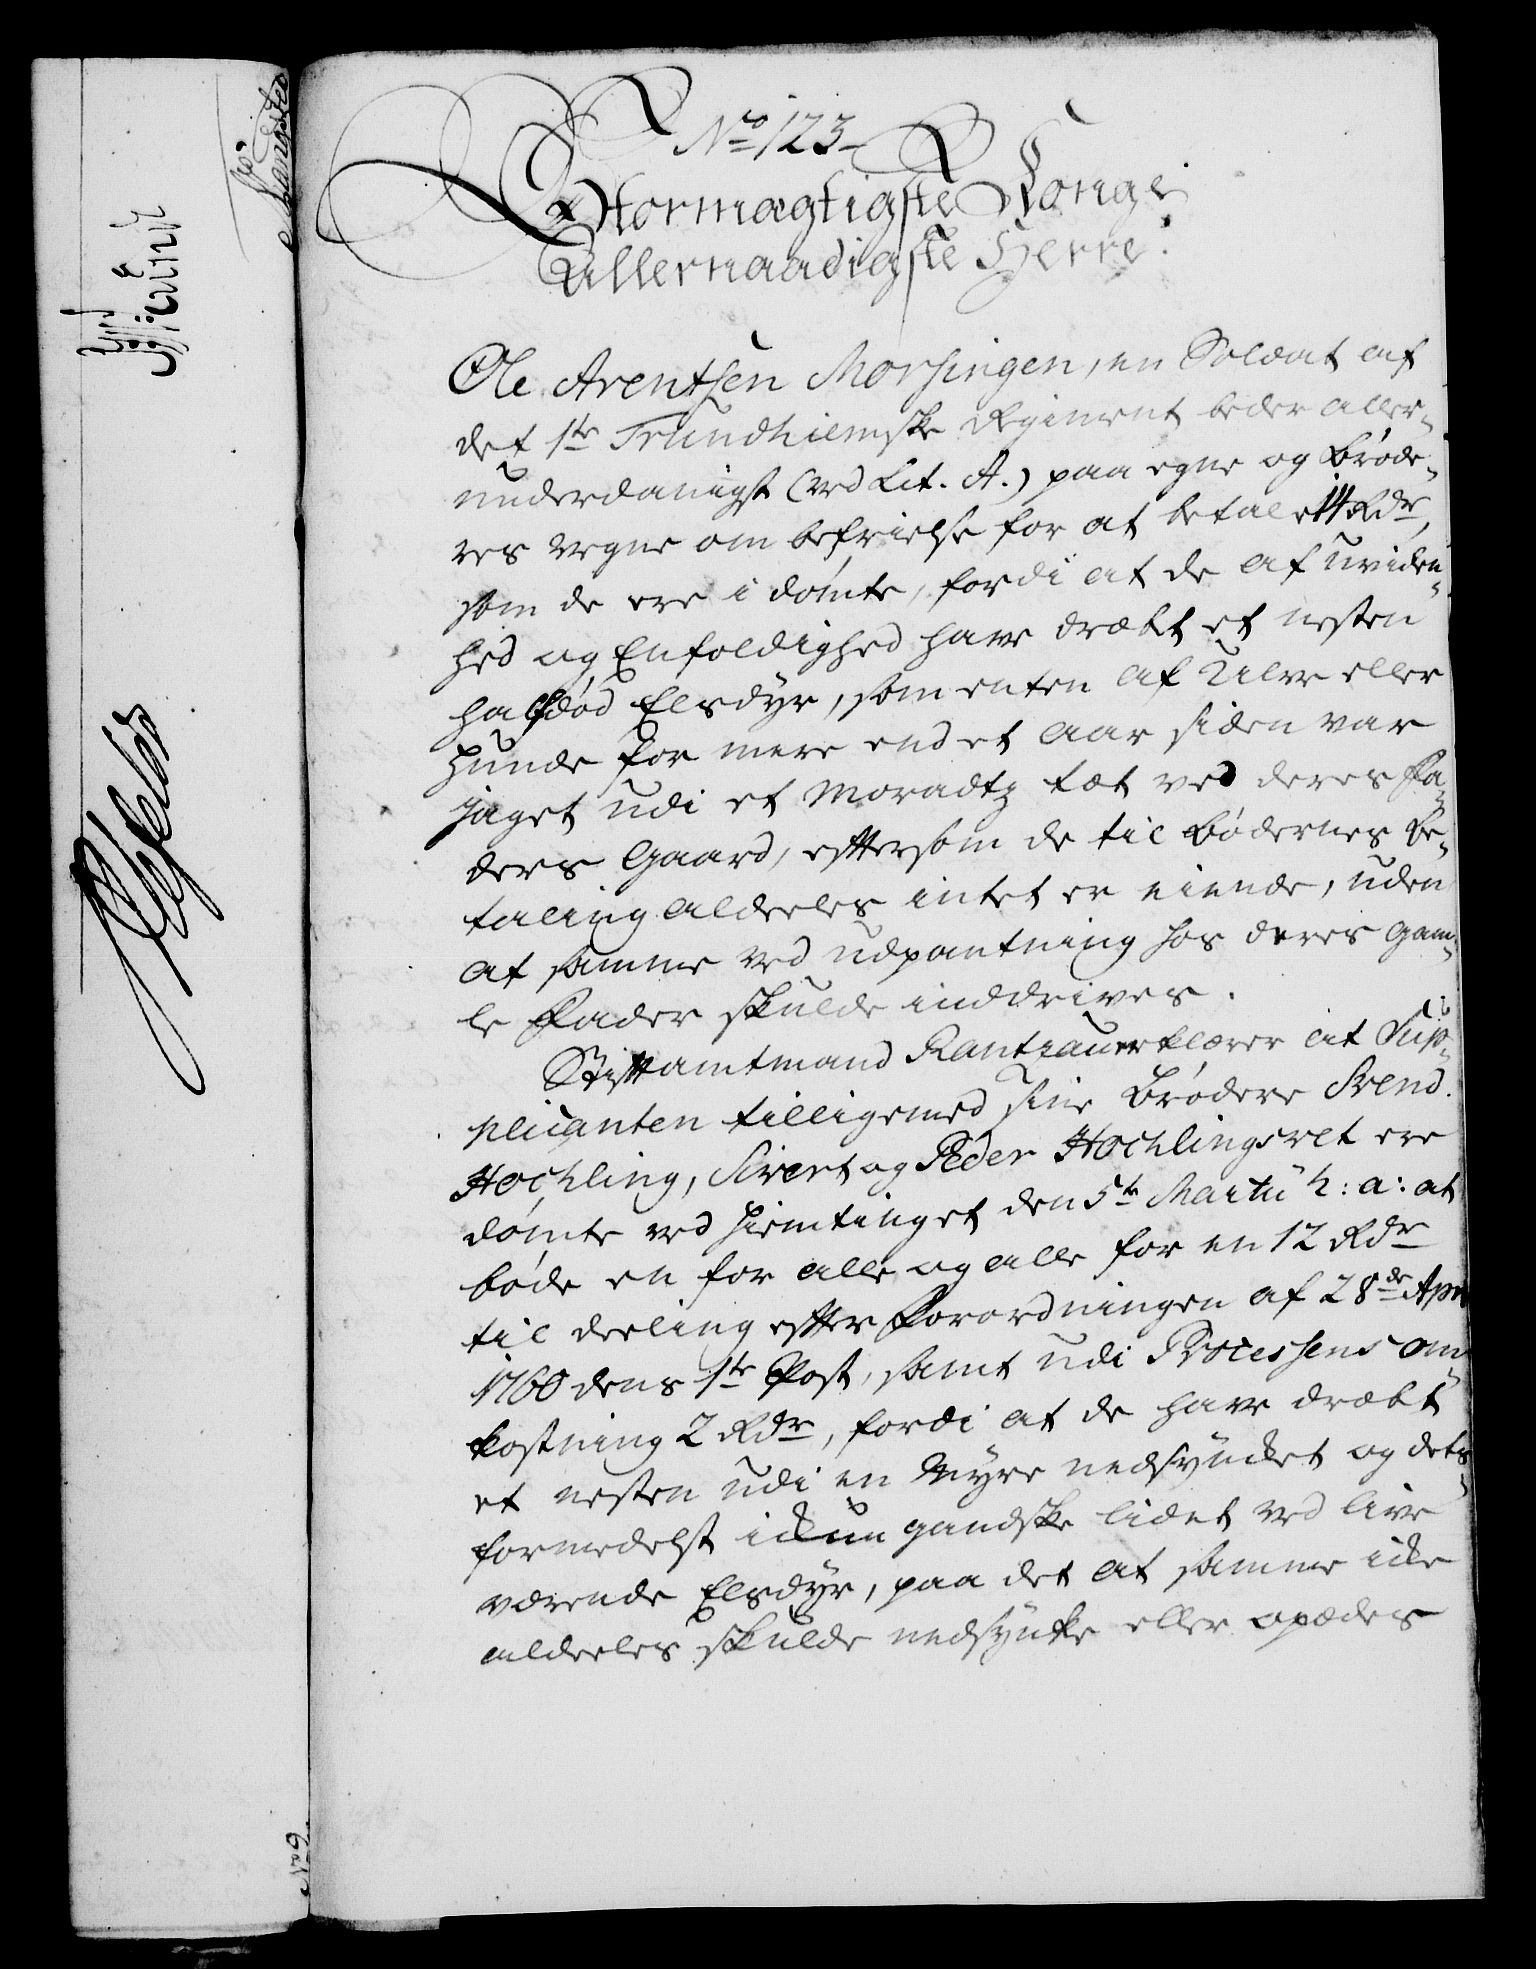 No 123
Stormægtigste Konge
Allernaadigste Herre!
Ole Arentsen Morsingen, en Soldat af
det 1te Trundhiemske Regiment beder aller-
underdanigst (ved Lit. A.) paa egne og Brøde-
res vegne om befrielse for at betale 14 Rdr,
som de ere i dømte, fordi at de af uviden-
hed og Enfoldighed have dræbt et nesten
halfdød Elsdyr, som enten af Ulve eller
Hunde for mere end et Aar siden var
jaget udi et Moradtz tæt ved deres Fa-
ders Gaard, eftersom de til Bødernes Be-
taling aldeeles intet er eiende, uden
at samme ved udpantning hos deres gam-
le Fader skulde inddrives.
Stiftamtmand Rantzau erklærer at Sup-
plicanten tilligemed sine Brødere Svend
Hochling, Sivert og Peder Hochlingsvet ere
dømte ved Hiemtinget den 5te Martii h: a: at
bøde en for alle og alle for en 12 Rdr
til deeling efter Forordningen af 28de Apr
1760 dens 1te Post, samt udi Processens om-
kostning 2 Rdr, fordi at de have dræbt
et nesten udi en Myre nedsyncket og det-
formedelst ickun gandske lidet ved live
værende Elsdyr, paa det at samme icke
aldeeles skulde nedsyncke eller opædes
No 9.